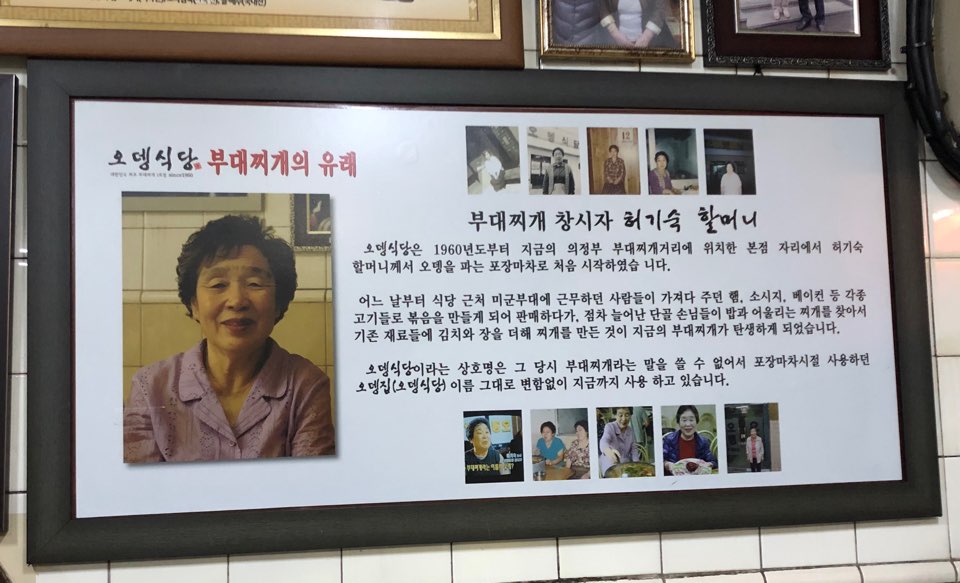 오뎅식당 부대찌개의 유래
부대찌개 창시자 허기숙 할머니
오뎅식당은 1960년도부터 지금의 의정부 부대찌개거리에 위치한 본점 자리에서 허기숙
할머니께서 오뎅을 파는 포장마차로 처음 시작하였습 니다.
어느 날부터 식당 근처 미군부대에 근무하던 사람들이 가져다 주던 햄, 소시지, 베이컨 등 각종
고기들로 볶음을 만들게 되어 판매하다가, 점차 늘어난 단골 손님들이 밥과 어울리는 찌개를 찾아서
기존 재료들에 김치와 장을 더해 찌개를 만든 것이 지금의 부대찌개가 탄생하게 되었습니다.
오뎅식당이라는 상호명은 그 당시 부대찌개라는 말을 쓸 수 없어서 포장마차시절 사용하던
오뎅집(오뎅식당) 이름 그대로 변함없이 지금까지 사용 하고 있습니다.